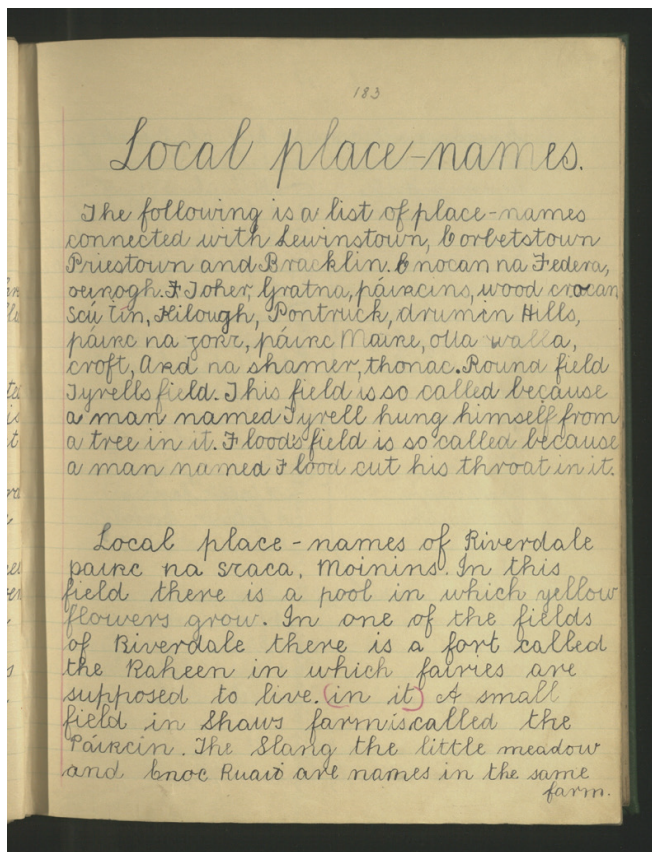 183
Local place-names.
The following is a list of place-names
connected with Lewinstown, Corbetstown
Priestown and Bracklin. Cnocan na Federa,
F Joher, Gratna, páircíns, wood crocan
Scú Tin, Kilough, Pontruck, drumin Hills,
páirc na gort, páirc Maire, olla walla,
croft, Ard na shamer, thonac. Round field
Tyrells field. This field is so called because
a man named Tyrell hung himself from
a tree in it. Floods field is so called because
a man named Flood cut his throat in it.
Local place-names of Riverdale
páirc na sraca, Moinins. In this
field there is a pool in which yellow
flowers grow. In one of the fields
of Riverdale there is a fort called
the Raheen in which fairies are
supposed to live. (in it) A small
field in Shaws farm is called the
Páircín. The Slang the little meadow
and Cnoc Ruaiḋ are names in the same
farm.